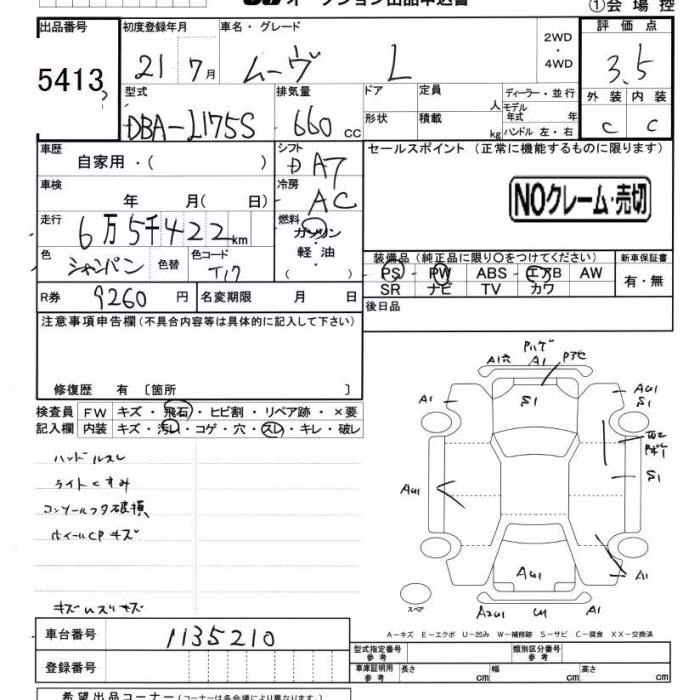 オークション出品申込書
①会場控
出品番号 初度登録年月 車名・グレード 2WD・4WD 評価点
5413 21 7月 ムーヴ L 3.5
型式 排気量 ドア 定員 人 ディーラー・並行 外装 内装
DBA-L175S 660cc 形状 積載 kg モデル年式 年 C C
ハンドル 左・右
車歴 自家用・( ) シフト D A7 セールスポイント(正常に機能するものに限ります)
車検 年 月(日) 冷房 AC NOクレーム・売切
走行 6万5千422km 燃料 ガソリン
軽・油
( )
色 シャンパン 色替 色コード T17
装備品(純正品に限り○をつけてください) 新車保証書
PS PW ABS エアB AW 有・無
SR ナビ TV カワ
R券 9260円 名変期限 月 日 後日品
注意事項申告欄(不具合内容等は具体的に記入して下さい)
修復歴 有 〔箇所 〕
検査員 FW キズ・飛石・ヒビ割・リペア跡・×要
記入欄 内装 キズ・汚レ・コゲ・穴・スレ・キレ・破レ
ハンドルスレ
ライトくすみ
コンソールフタ破損
ホイールCPキズ
A1 S1 S1
A1
S1
AU1
AU1 A1
A1
スペア
A-キズ E-エクボ U-凹み W-補修跡 S-サビ C-腐食 XX-交換済
車台番号 1135210
登録番号
型式指定番号 参考 類別区分番号 参考
車庫証明用 参考 長さ cm 幅 cm 高さ cm
希望出品コーナー(コーナーは各会場により異なります。)